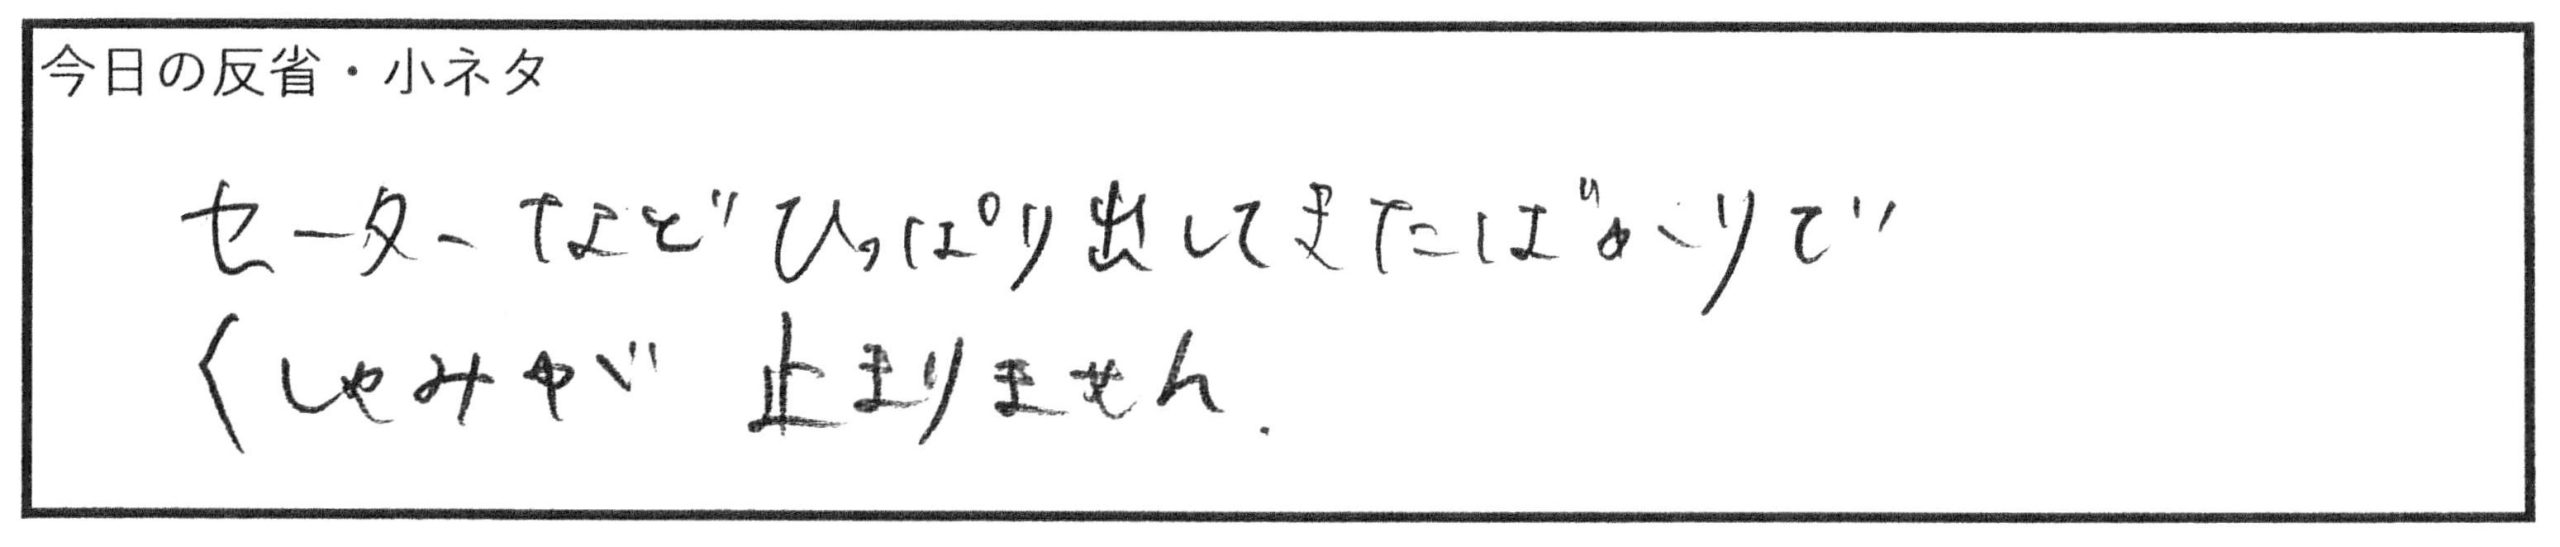 今日の反省・小ネタ
セーターなどひっぱり出してきたばかりで
くしゃみが 止まりません.